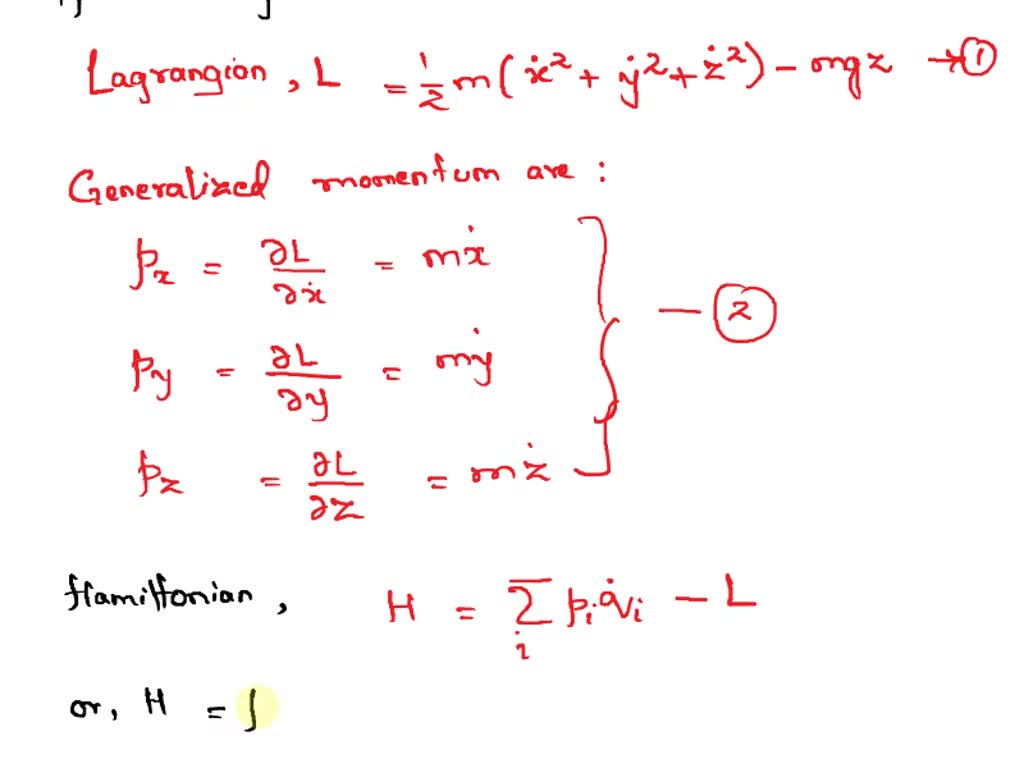 Lagrangion, L = 1/2 m(ẋ² + ẏ² + ż²) - mgz → ①
Generalized momentum are :
p_x = ∂L/∂ẋ = mẋ
p_y = ∂L/∂y = mẏ
— ②
p_z = ∂L/∂z = mż
Hamiltonian, H = Σ_i p_i q̇_i - L
or, H =